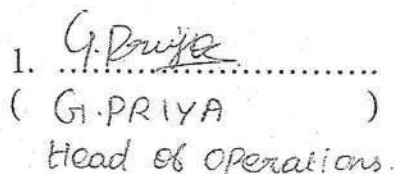 1. G.Priya
( G.PRIYA )
Head of operations.